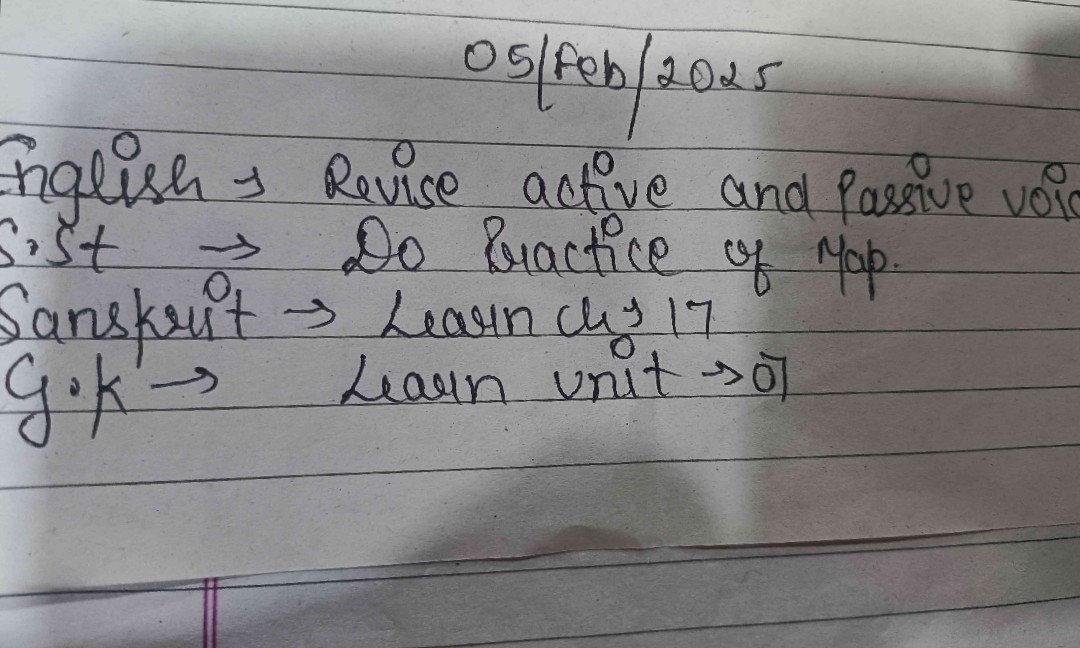 05/Feb/2025
English → Revise active and Passive voic
S.St → Do Practice of Map.
Sanskrit → Learn ch → 17
G.K → Learn unit → 07